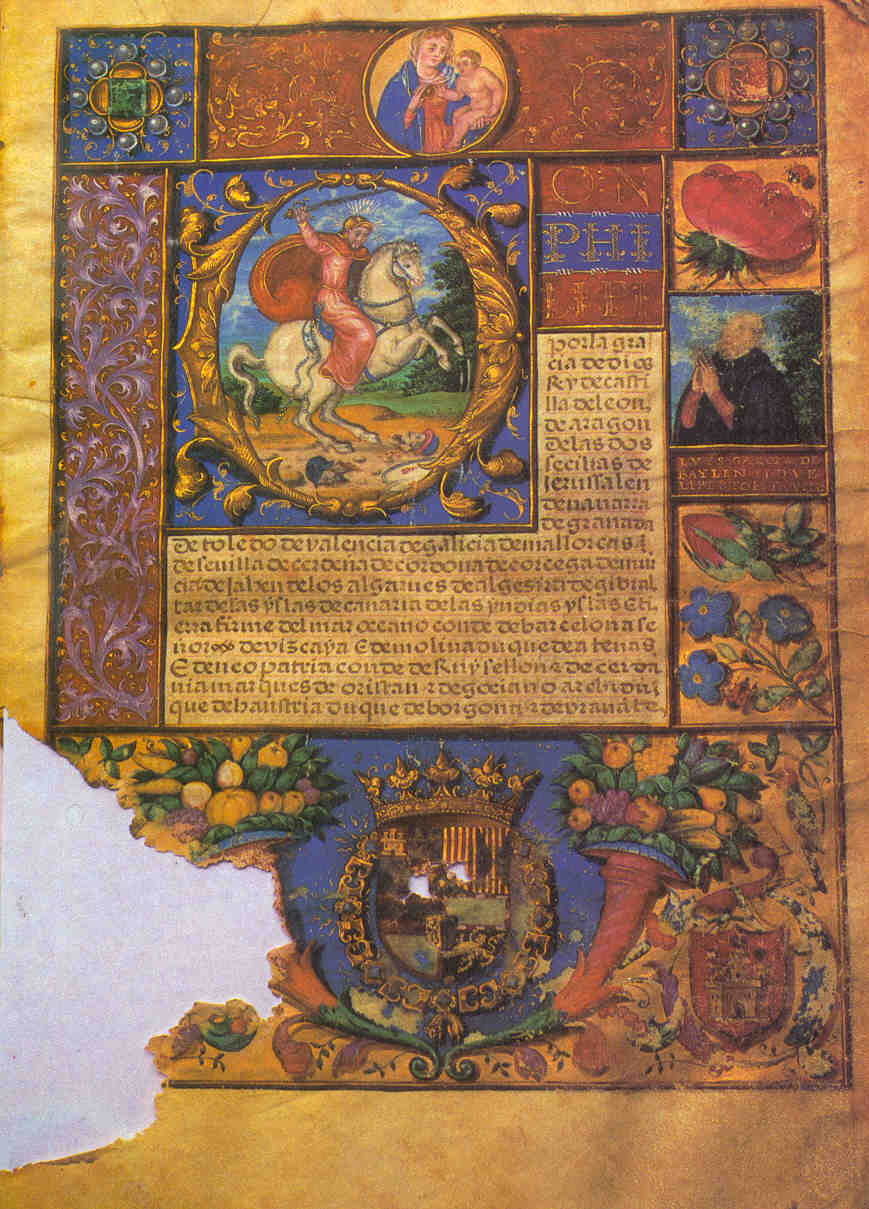 D
O·N
PHI
LIPI
por la gra
cia de dios
Rey de casti
lla de leon,
de aragon
de las dos
secilias de
Jerussalen
de navarra
de granada
de toledo de valencia de galicia de mallorcas
de sevilla de cerdena de cordova de corcega de mur
cia de Jahen de los algarves de algesira de gibral
tar de las yslas de canaria de las yndias yslas E ti
erra firme del mar oceano conde de barcelona se
ñor de vizcaya E de molina duque de atenas
E de neopatria conde de Ruysellon z de cerda
nia marques de oristan z de gociano archidu
que de haustria duque de borgoña z de bravāte
BAYLEN